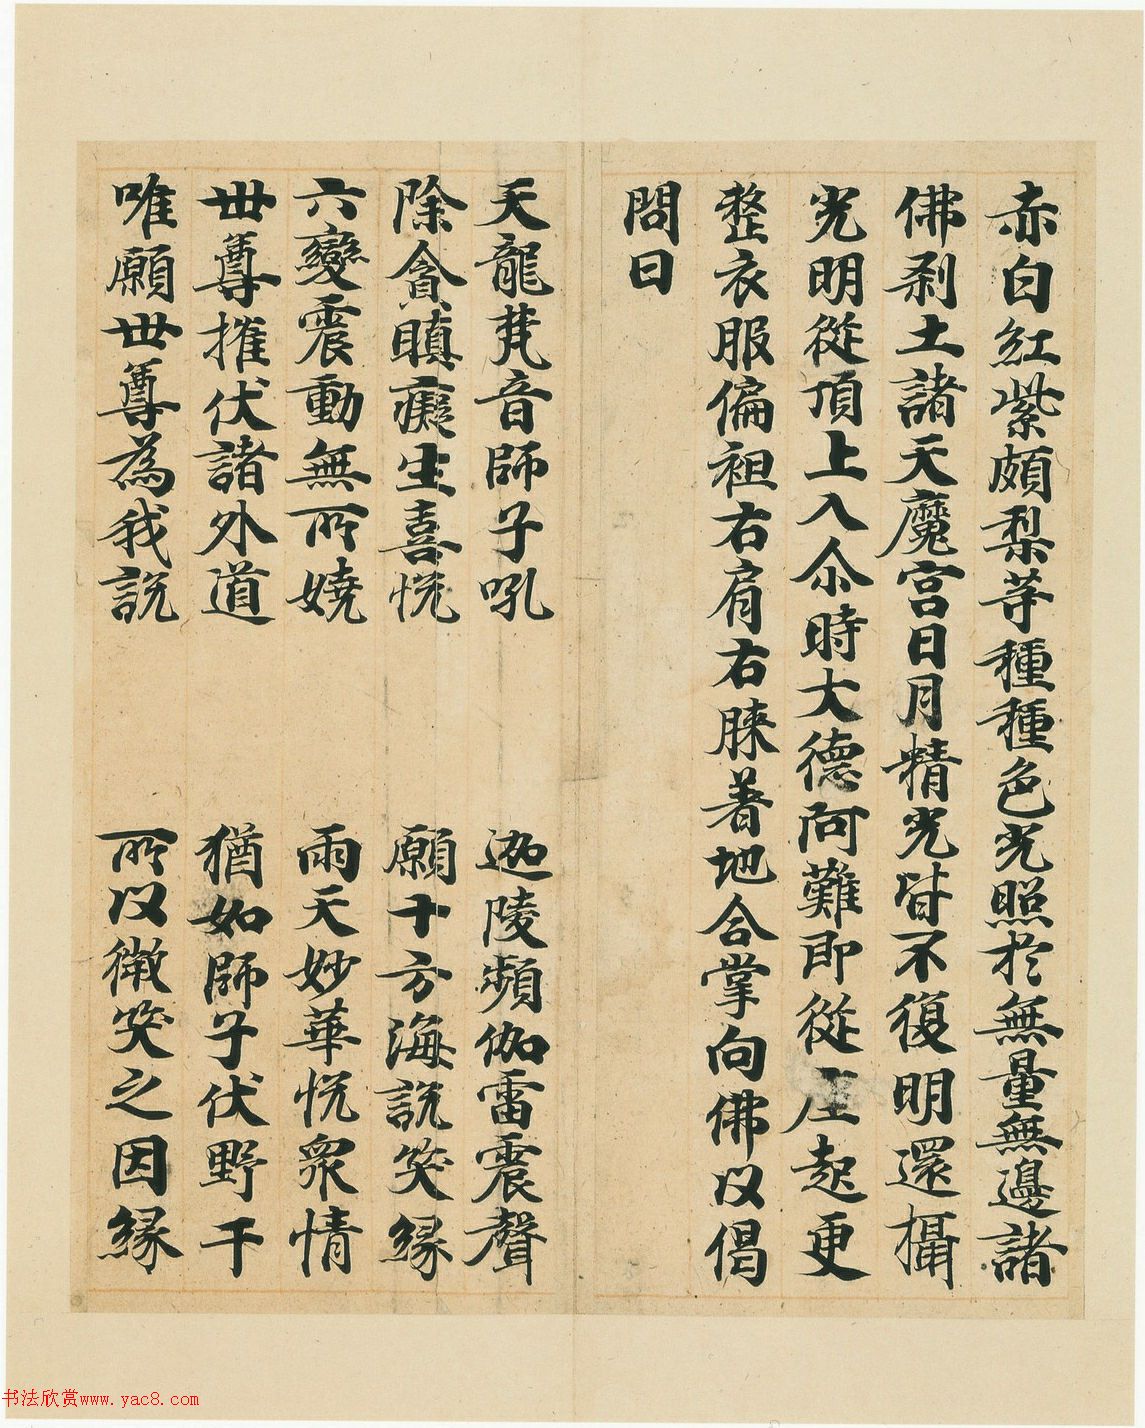 赤白紅紫頗梨等種種色光照於無量無邊諸
佛刹土諸天魔宮日月精光皆不復明還攝
光明從頂上入尒時大德阿難即從座起更
整衣服偏袒右肩右膝著地合掌向佛以偈
問曰
天龍梵音師子吼 迦陵頻伽雷震聲
除貪瞋癡生喜悅 願十方海說笑緣
六變震動無所嬈 雨天妙華悅衆情
世尊摧伏諸外道 猶如師子伏野干
唯願世尊為我說 所以微笑之因緣
书法欣赏www.yac8.com